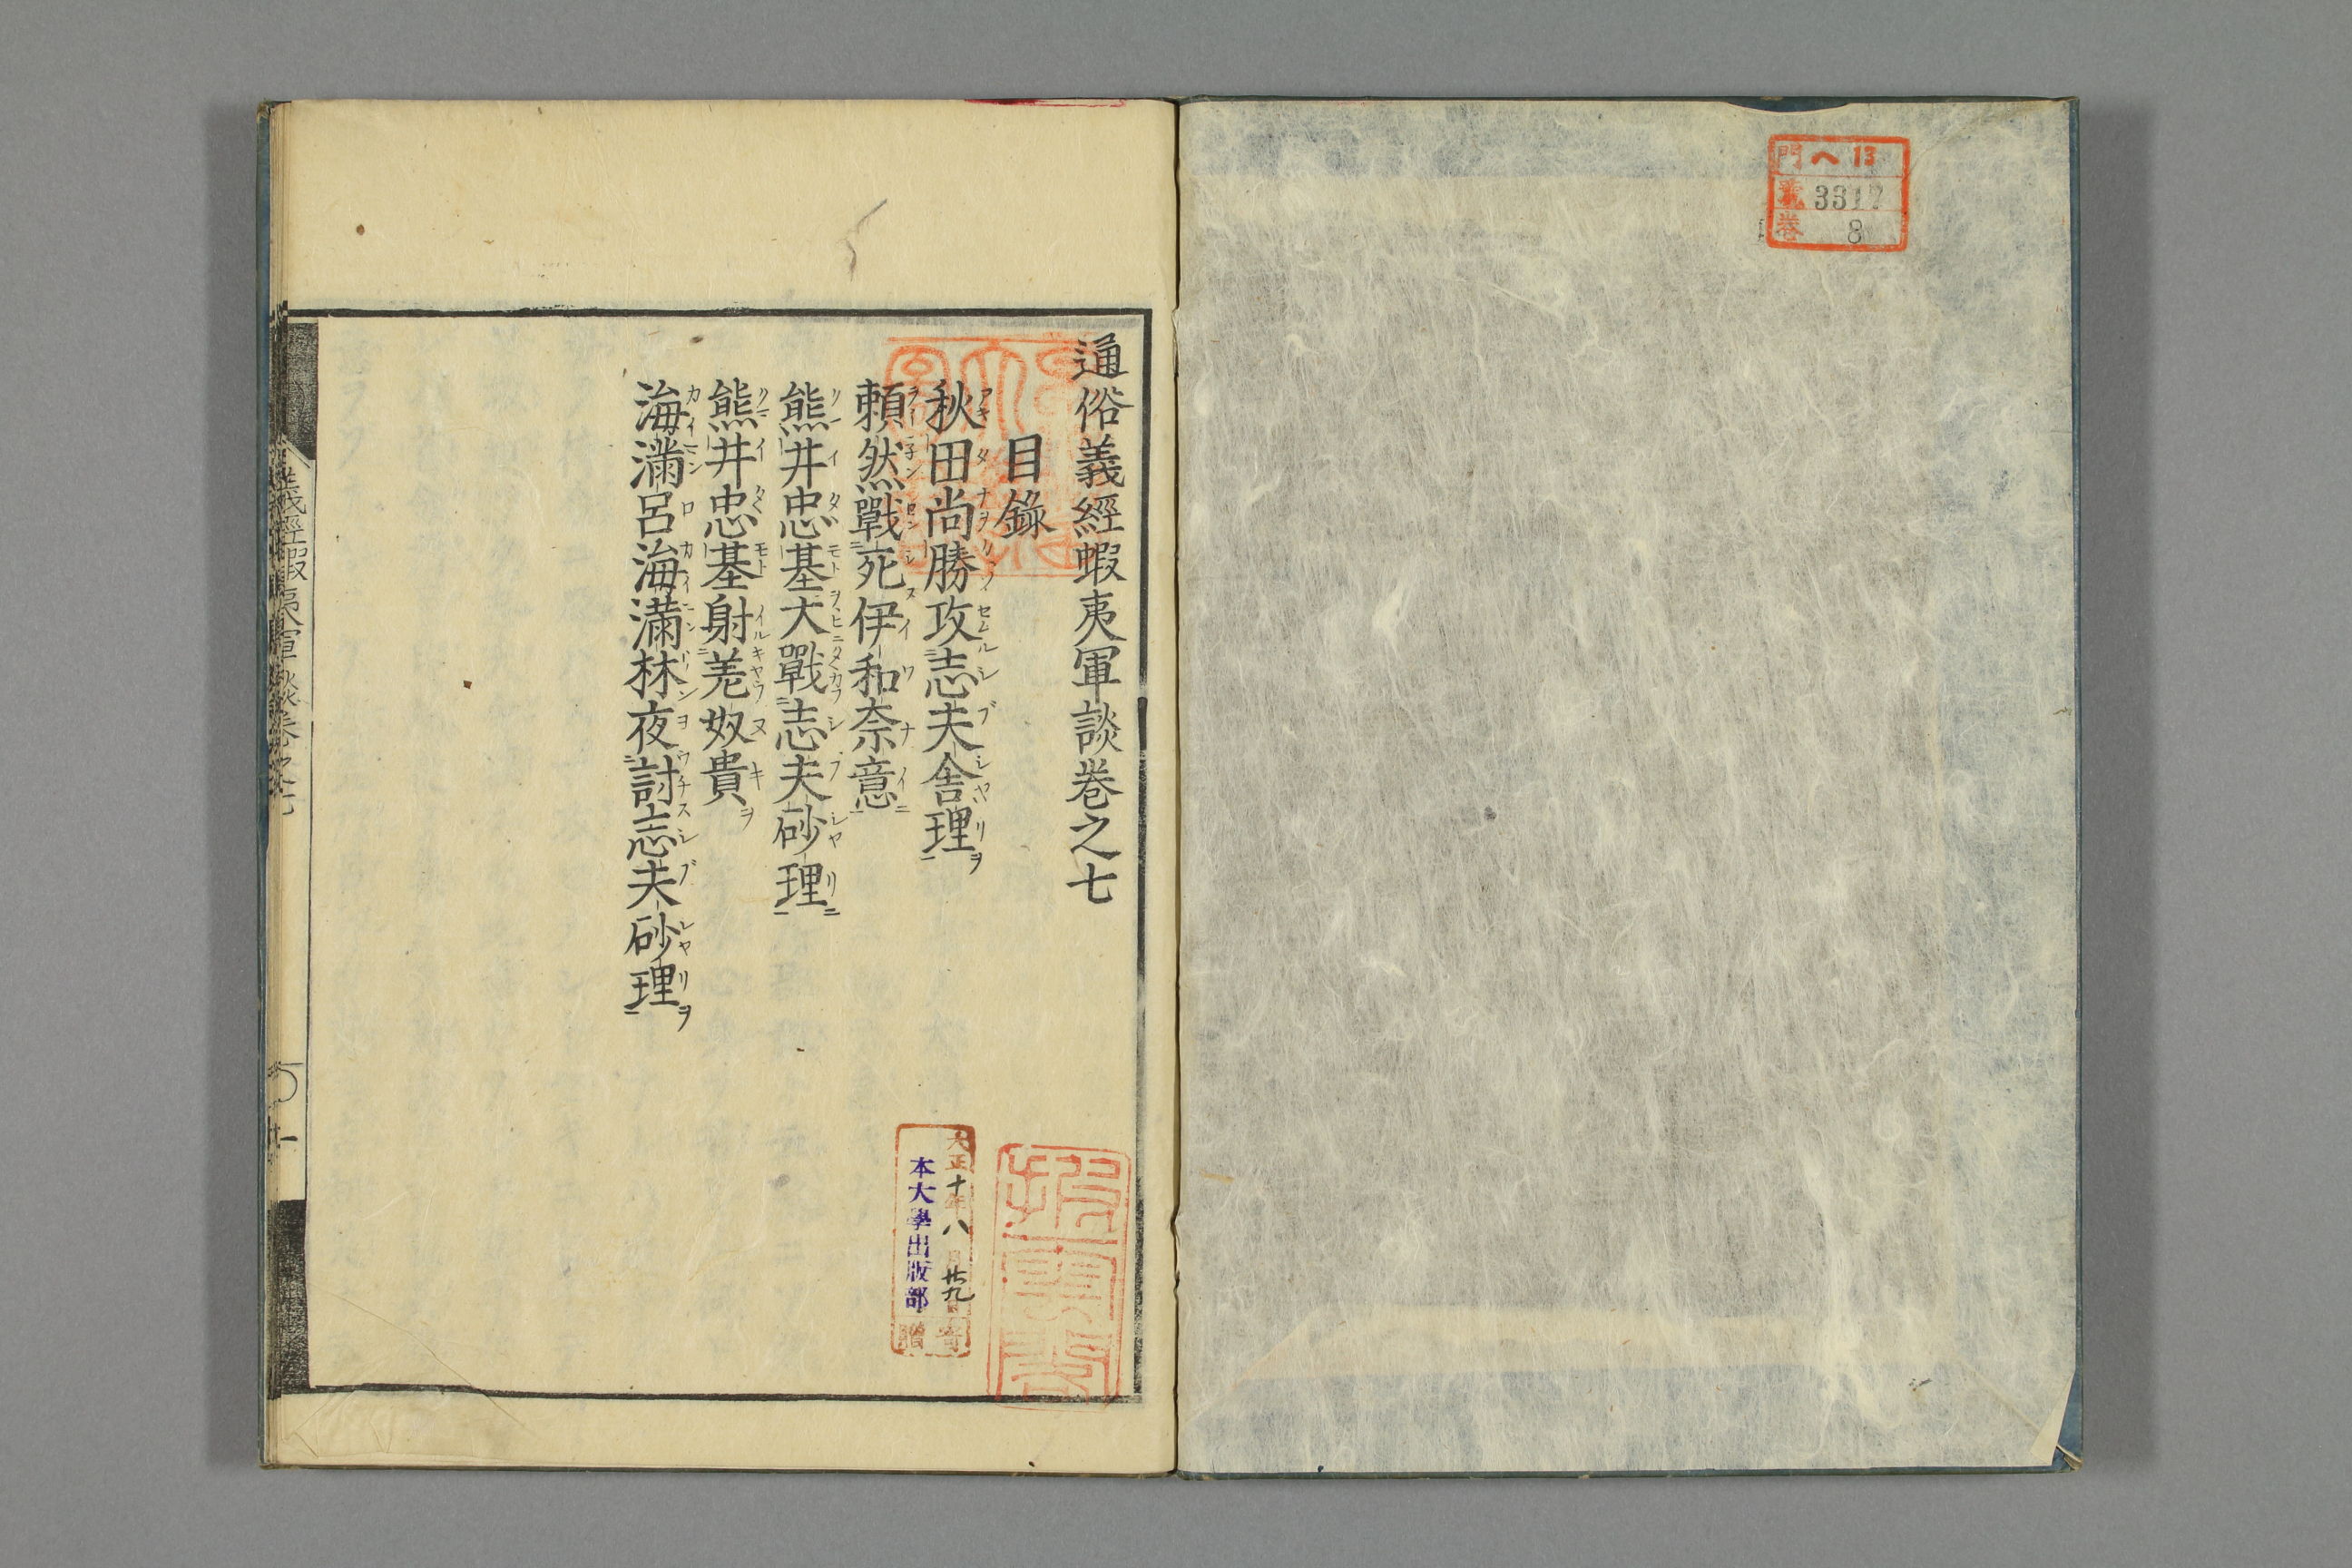 門 ヘ 13
號 3317
巻 8
通俗義經蝦夷軍談巻之七
目錄
秋田尚勝攻志夫舎理
頼然戰死伊和奈意
熊井忠基大戰志夫砂理
熊井忠基射羌奴貴
海満呂海満林夜討志夫砂理
大正十年八月廿九日
本大學出版部
寄贈
義經蝦夷軍談巻之七